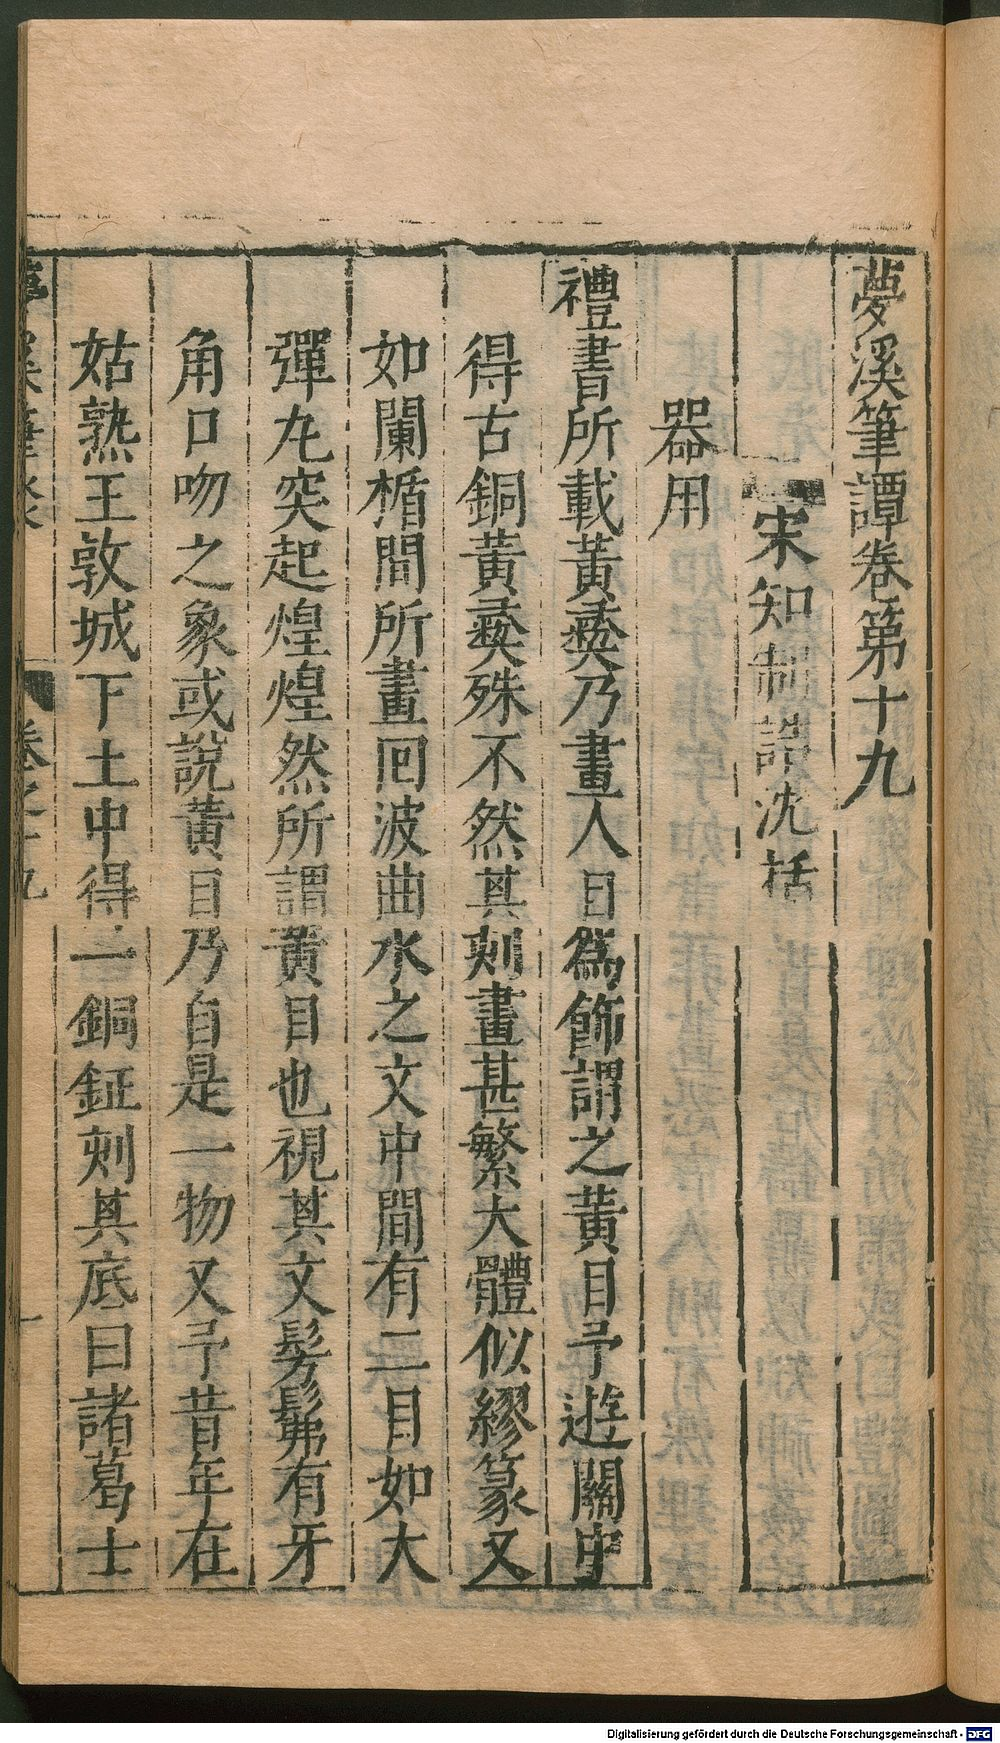 夢溪筆譚卷第十九
宋知制誥沈括
器用
禮書所載黃彝乃畫人目爲飾謂之黃目予遊關中
得古銅黃彝殊不然其刻畫甚繁大體似繆篆又
如闌楯間所畫回波曲水之文中間有二目如大
彈丸突起煌煌然所謂黃目也視其文髣髴有牙
角口吻之象或說黃目乃自是一物又予昔年在
姑熟王敦城下土中得一銅鉦刻其底曰諸葛士
卷之十九
Digitalisierung gefördert durch die Deutsche Forschungsgemeinschaft - DFG